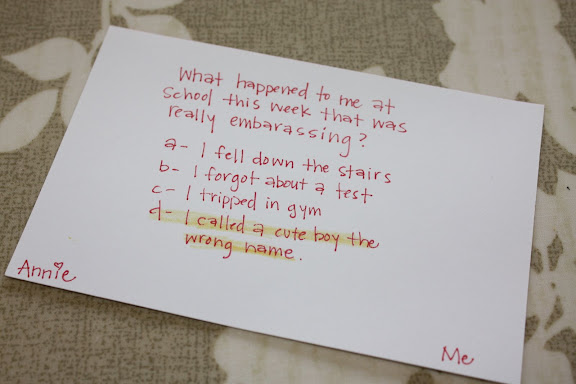 What happened to me at
school this week that was
really embarassing?
a- I fell down the stairs
b- I forgot about a test
c- I tripped in gym
d- I called a cute boy the
wrong name.
Annie
Me